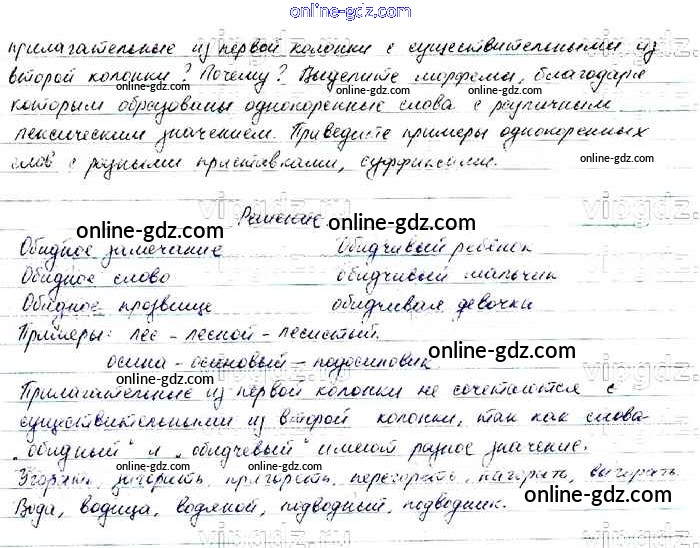 online-gdz.com
прилагательные из первой колонки с существительными из
второй колонки? Почему? Выделите морфемы, благодаря
которым образованы однокоренные слова с различным
лексическим значением. Приведите примеры однокоренных
слов с разными приставками, суффиксами.
online-gdz.com
Решение
online-gdz.com
Обидное замечание обидчивый ребёнок
Обидное слово обидчивый мальчик
Обидное прозвище обидчивая девочка
Примеры: лес - лесной - лесистый.
осина - осиновый - подосиновик.
Прилагательные из первой колонки не сочетаются с
существительными из второй колонки, так как слова
„обидный" и „обидчевый" имеют разное значение.
загорать, пригорать, перегорать, выгорать.
Вода, водица, водяной, подводный, подводник.
online-gdz.com
vipgdz.ru